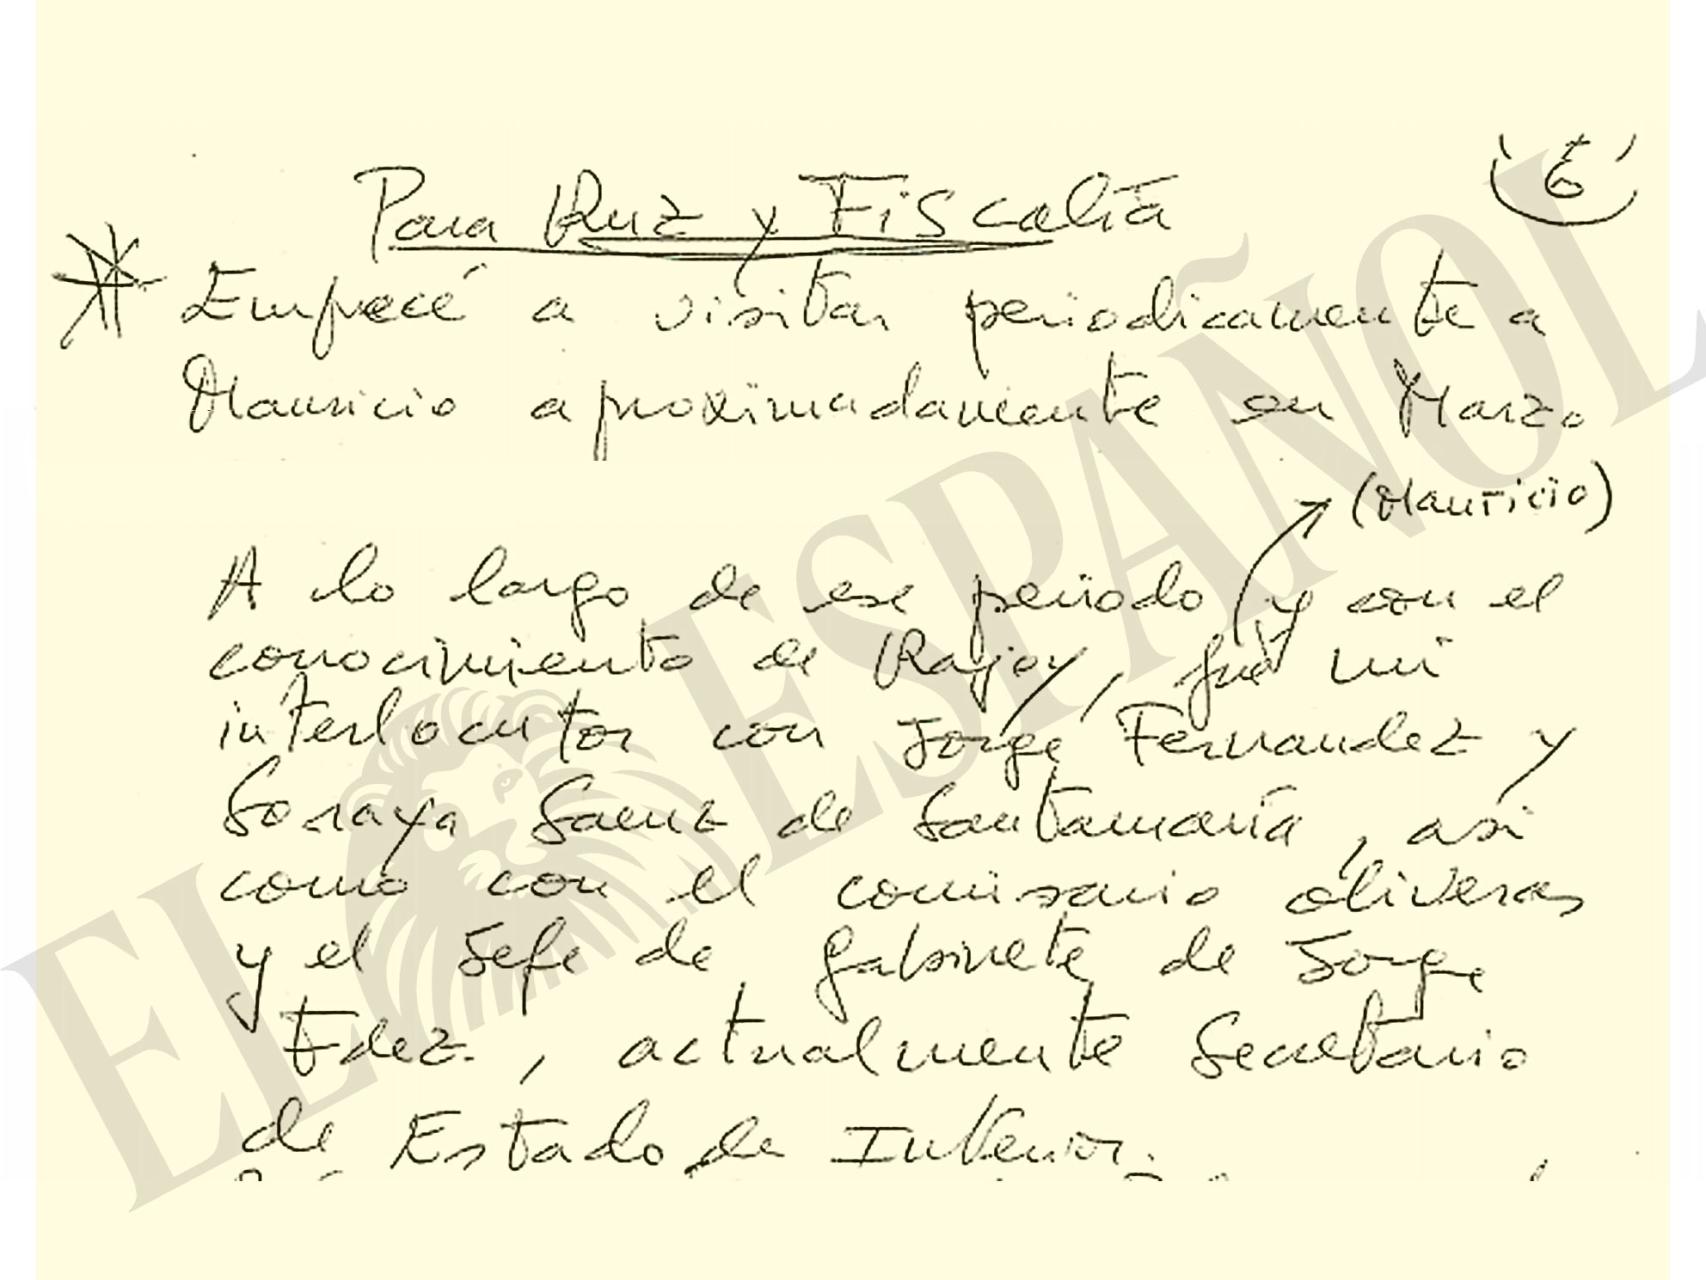 6
Para Ruz y Fiscalía
Empecé a visitar periodicamente a
Mauricio aproximadamente en Marzo
(Mauricio)
A lo largo de ese periodo y con el
conocimiento de Rajoy, fué mi
interlocutor con Jorge Fernandez y
Soraya Saenz de Santamaría, asi
como con el comisario Oliveras
y el Jefe de gabinete de Jorge
Fdez., actualmente Secretario
de Estado de Interior.
EL ESPAÑOL